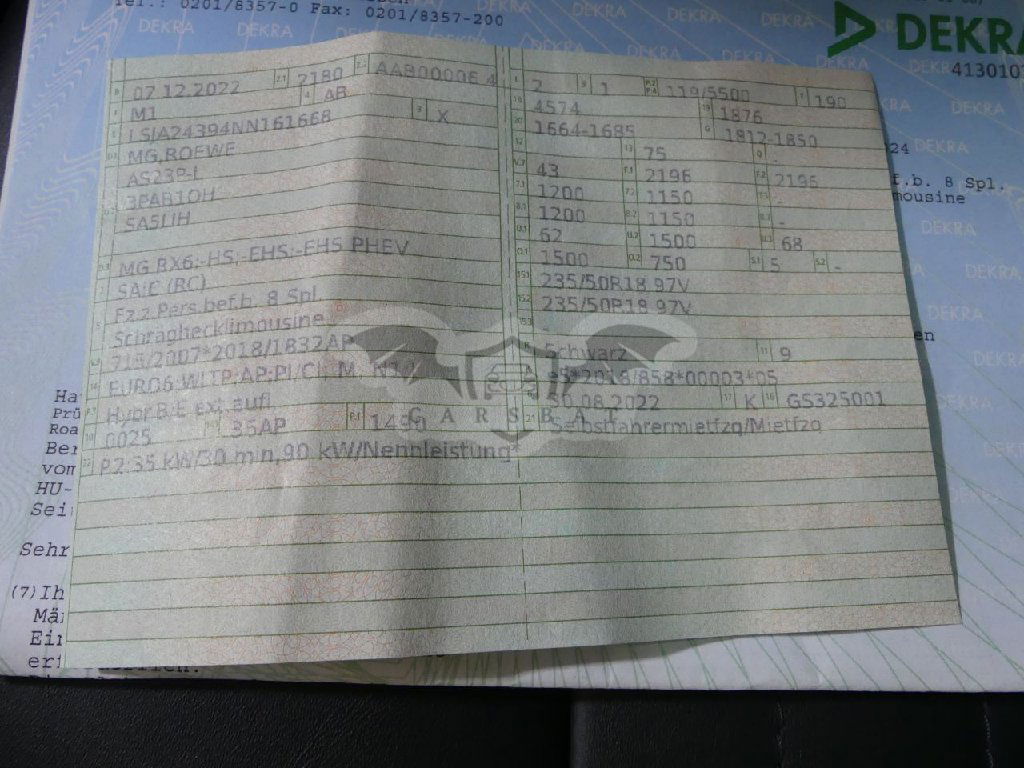 Tel.: 0201/8357-0 Fax: 0201/8357-200
DEKRA
413010
07.12.2022 2.1 2180 2.2 AAB00006 4
M1 4 AB
LSJA24394NN161668 3 X
MG ROEWE
AS23P-L
3PAB1OH
SA5LJH
MG RX6;-HS;-EHS;-EHS PHEV
SAIC (RC)
Fz.z.Pers.bef.b. 8 Spl.
Schräghecklimousine
715/2007*2018/1832AP
EURO6;WLTP;AP;PI/CI; M, N1 I
Hybr.B/E ext.aufl
0025 36AP P.1 1490
P2:35 kW/30 min,90 kW/Nennleistung*
2 9 1 P.2 P.4 119/5500 T 190
4574 19 1876
1664-1685 G 1812-1850
75
43 2196 2196
1200 1150 -
1200 1150 -
62 1500 68
1500 750 S.1 5 S.2 -
235/50R18 97V
235/50R18 97V
Schwarz 11 9
e5*2018/858*00003*05
30.08.2022 17 K 16 GS325001
Selbstfahrermietfzg/Mietfzg
CARSBAT
24
f.b. 8 Spl.
mousine
en
Ha
Prü
Roa
Ber
vom
HU-
Sei
Sehr
(7)Ih
Mä
Ein